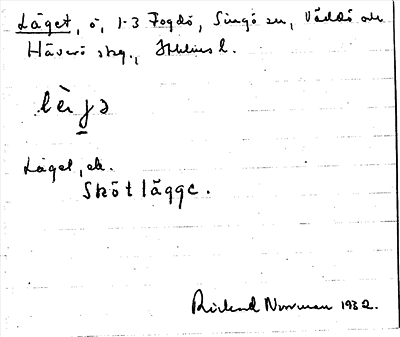 Läget, ö, 1-3 Fogdö, Singö sn, Väddö och
Häverö skg., Sthlms l.
lèi̯ə
Läget, ek.
Skötlägge.
Rickard Norrman 1932.